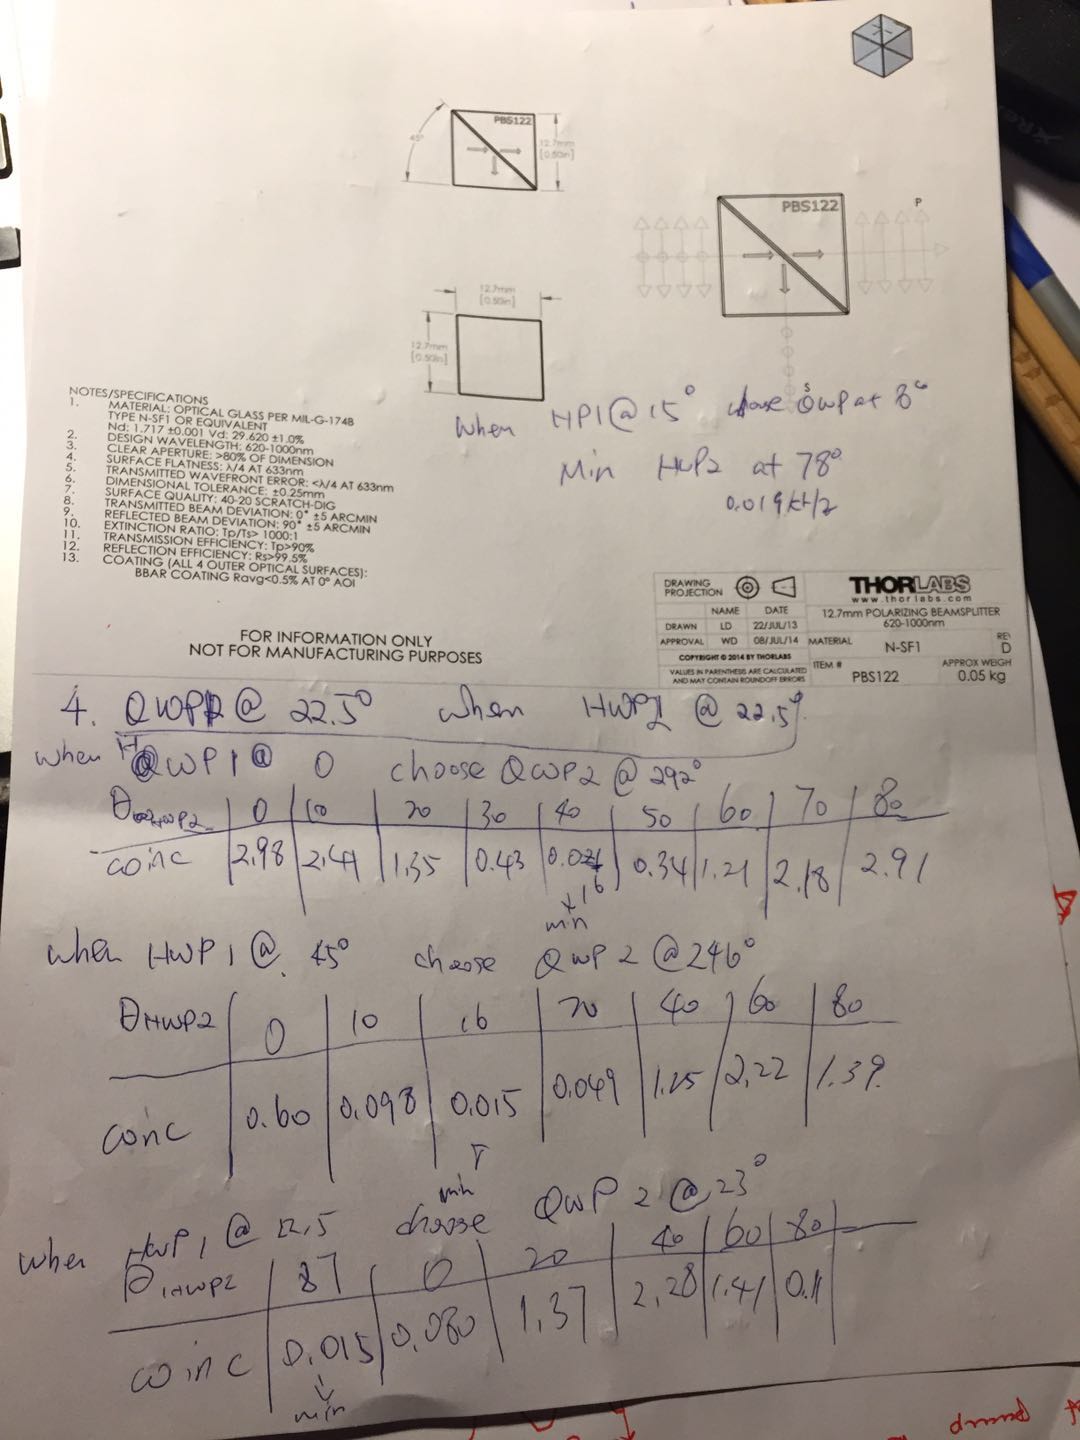 PBS122
45°
12.7mm
[0.50in]
PBS122
P
12.7mm
[0.50in]
12.7mm
[0.50in]
S
When HP1@15° chose QWP at 8°
Min HWP2 at 78°
0.019 kHz
NOTES/SPECIFICATIONS
1. MATERIAL: OPTICAL GLASS PER MIL-G-174B
TYPE N-SF1 OR EQUIVALENT
Nd: 1.717 ±0.001 Vd: 29.620 ±1.0%
2. DESIGN WAVELENGTH: 620-1000nm
3. CLEAR APERTURE: >80% OF DIMENSION
4. SURFACE FLATNESS: λ/4 AT 633nm
5. TRANSMITTED WAVEFRONT ERROR: <λ/4 AT 633nm
6. DIMENSIONAL TOLERANCE: ±0.25mm
7. SURFACE QUALITY: 40-20 SCRATCH-DIG
8. TRANSMITTED BEAM DEVIATION: 0° ±5 ARCMIN
9. REFLECTED BEAM DEVIATION: 90° ±5 ARCMIN
10. EXTINCTION RATIO: Tp/Ts> 1000:1
11. TRANSMISSION EFFICIENCY: Tp>90%
12. REFLECTION EFFICIENCY: Rs>99.5%
13. COATING (ALL 4 OUTER OPTICAL SURFACES):
BBAR COATING Ravg<0.5% AT 0° AOI
FOR INFORMATION ONLY
NOT FOR MANUFACTURING PURPOSES
DRAWING PROJECTION
THORLABS
www.thorlabs.com
NAME DATE
DRAWN LD 22/JUL/13
APPROVAL WD 08/JUL/14
COPYRIGHT © 2014 BY THORLABS
VALUES IN PARENTHESIS ARE CALCULATED
AND MAY CONTAIN ROUNDOFF ERRORS
12.7mm POLARIZING BEAMSPLITTER
620-1000nm
MATERIAL N-SF1 REV D
ITEM # PBS122 APPROX WEIGH 0.05 kg
4. @ 22.5° when @ 22.5°
when HWP1 @ 0 choose QWP2 @ 292°
θHWP2 0 10 20 30 40 50 60 70 80
coinc 2.98 2.41 1.35 0.43 0.34 1.21 2.18 2.91
min
when HWP1 @ 45° choose QWP2 @ 246°
θHWP2 0 10 16 20 40 60 80
coinc 0.60 0.098 0.015 0.049 1.25 2.22 1.39
min
when HWP1 @ 22.5 choose QWP2 @ 23°
θHWP2 87 0 20 40 60 80
coinc 0.015 0.080 1.37 2.28 1.41 0.11
min